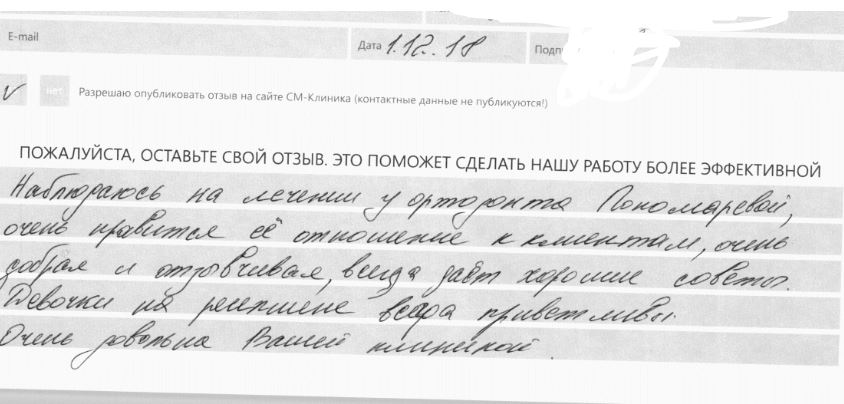 E-mail
Дата 1.12.18
Подп
✓ нет Разрешаю опубликовать отзыв на сайте СМ-Клиника (контактные данные не публикуются!)
ПОЖАЛУЙСТА, ОСТАВЬТЕ СВОЙ ОТЗЫВ. ЭТО ПОМОЖЕТ СДЕЛАТЬ НАШУ РАБОТУ БОЛЕЕ ЭФФЕКТИВНОЙ
Наблюдаюсь на лечении у ортодонта Пономаревой,
очень нравится её отношение к клиентам, очень
добрая и отзывчивая, всегда даёт хорошие советы.
Девочки на ресепшене всегда приветливы.
Очень довольна Вашей клиникой.